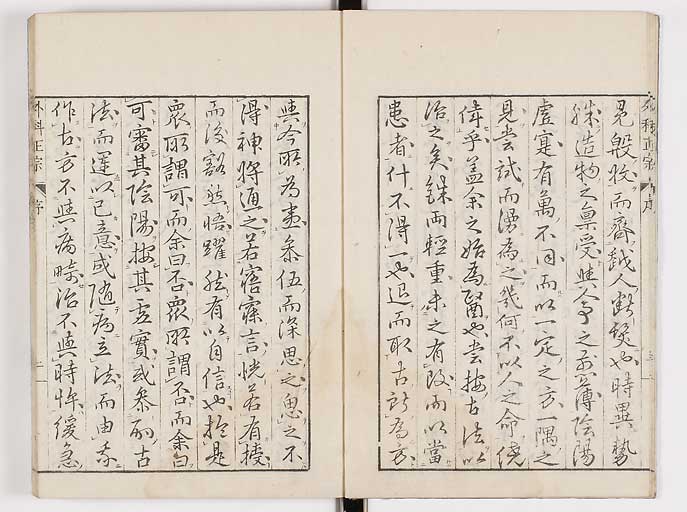 見殷眅而齊越人斷髪也時異勢
殊造物之稟受與命之厚薄陰陽
虚寔有萬不同而以一定之方一隅之
見嘗試而湯為之幾何不以人之命僥
倖乎蓋余之始為醫也嘗按古法以
治之矣銖兩輕重未之有改而以當
患者什不得一也退而取古所為方
與今所為畫參伍而深思之思之不
得神將通之若寤寐言恍若有授
而後豁然悟躍然有以自信也於是
衆所謂可而余曰否衆所謂否而余曰
可審其陰陽按其虚實或參酌古
法而運以己意或随病立法而由我
作古方不與病畸治不與時忤緩急
外科正宗 序